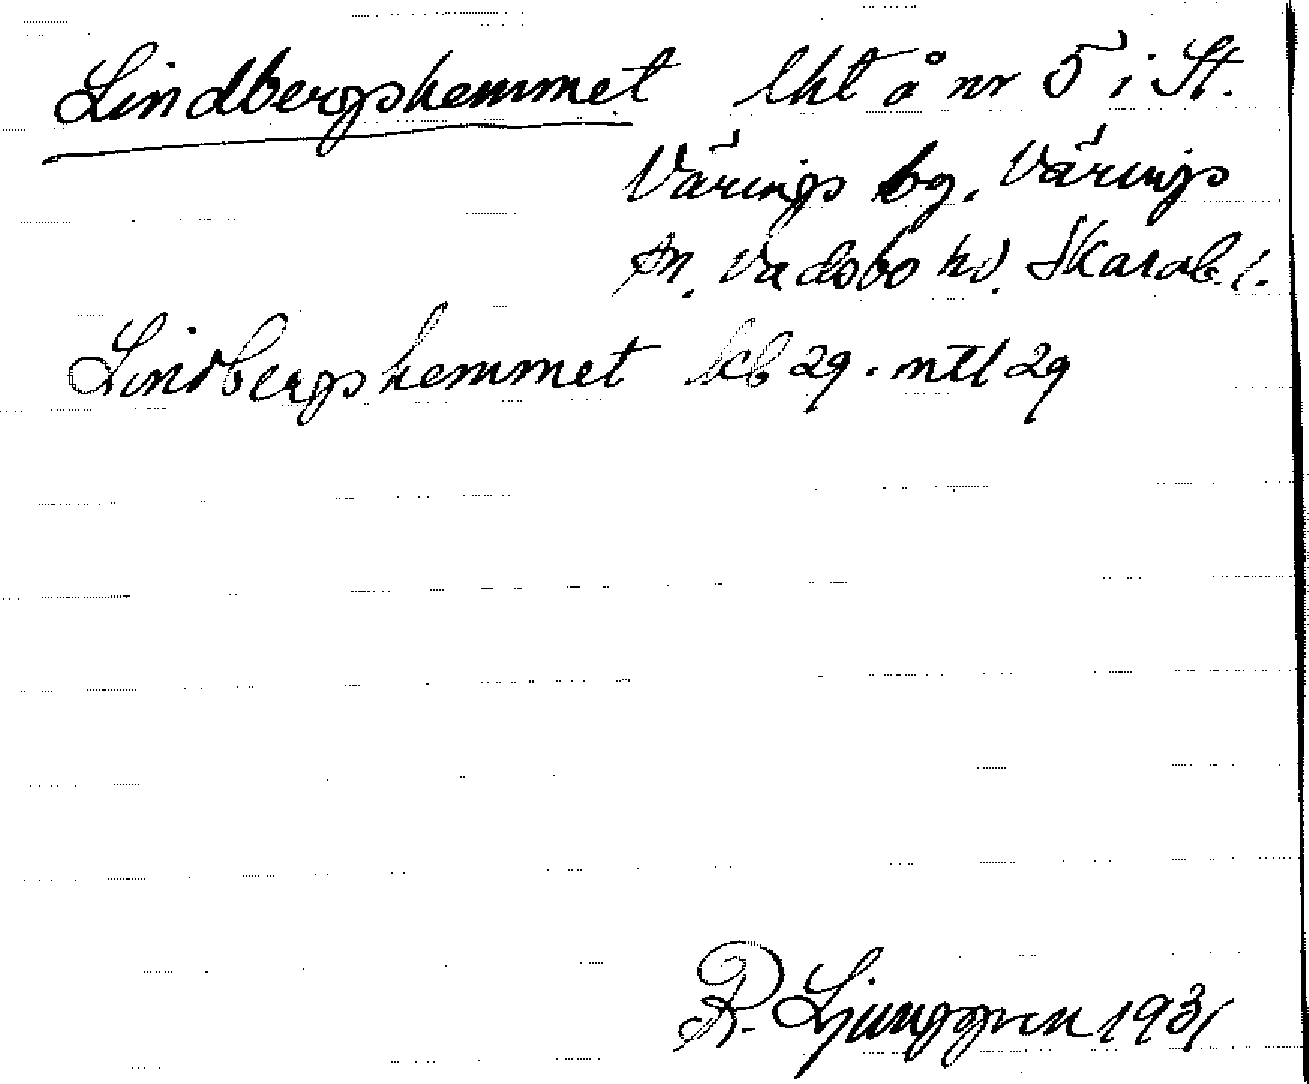 Lindbergshemmet lht å nr 5 i St.
Värings bg. Värings
sn. Vadsbo hd. Skarab. l.
Lindbergshemmet kb 29. mtl 29
R. Ljunggren 1931